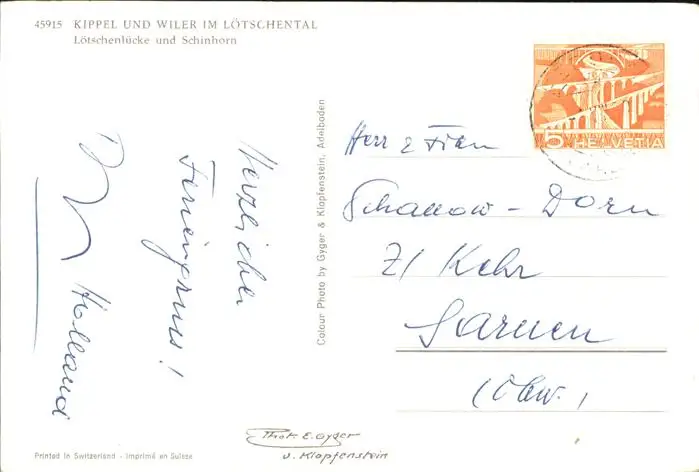 45915 KIPPEL UND WILER IM LÖTSCHENTAL
Lötschenlücke und Schinhorn
Herzlicher
Feriengruss!
Holland
Colour Photo by Gyger & Klopfenstein, Adelboden
5 HELVETIA
Herr & Frau
Schallow - Dorn
Z/ Kehr
Sarnen
(Obw.)
Phot. E. Gyger
u. Klopfenstein
Printed in Switzerland - Imprimé en Suisse